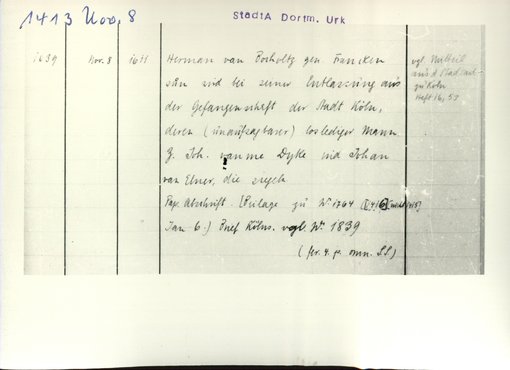 1413 Nov. 8
StadtA Dortm. Urk
1639 Nov. 8 1611 Herman van Bocholtz gen. Francken
sün wird bei seiner Entlassung aus
der Gefangenschaft der Stadt Köln,
deren (unaufsagbarer) lediger Mann.
Z. Joh. vanme Dyke und Johan
van Elner, die siegeln
Pap. Abschrift. (Beilage zu Nr. 1764
Jan 6.) Brief Kölns. vgl. Nr. 1839
vgl. Mitteil
aus d Stadtarch
zu Köln
Heft 16, 53